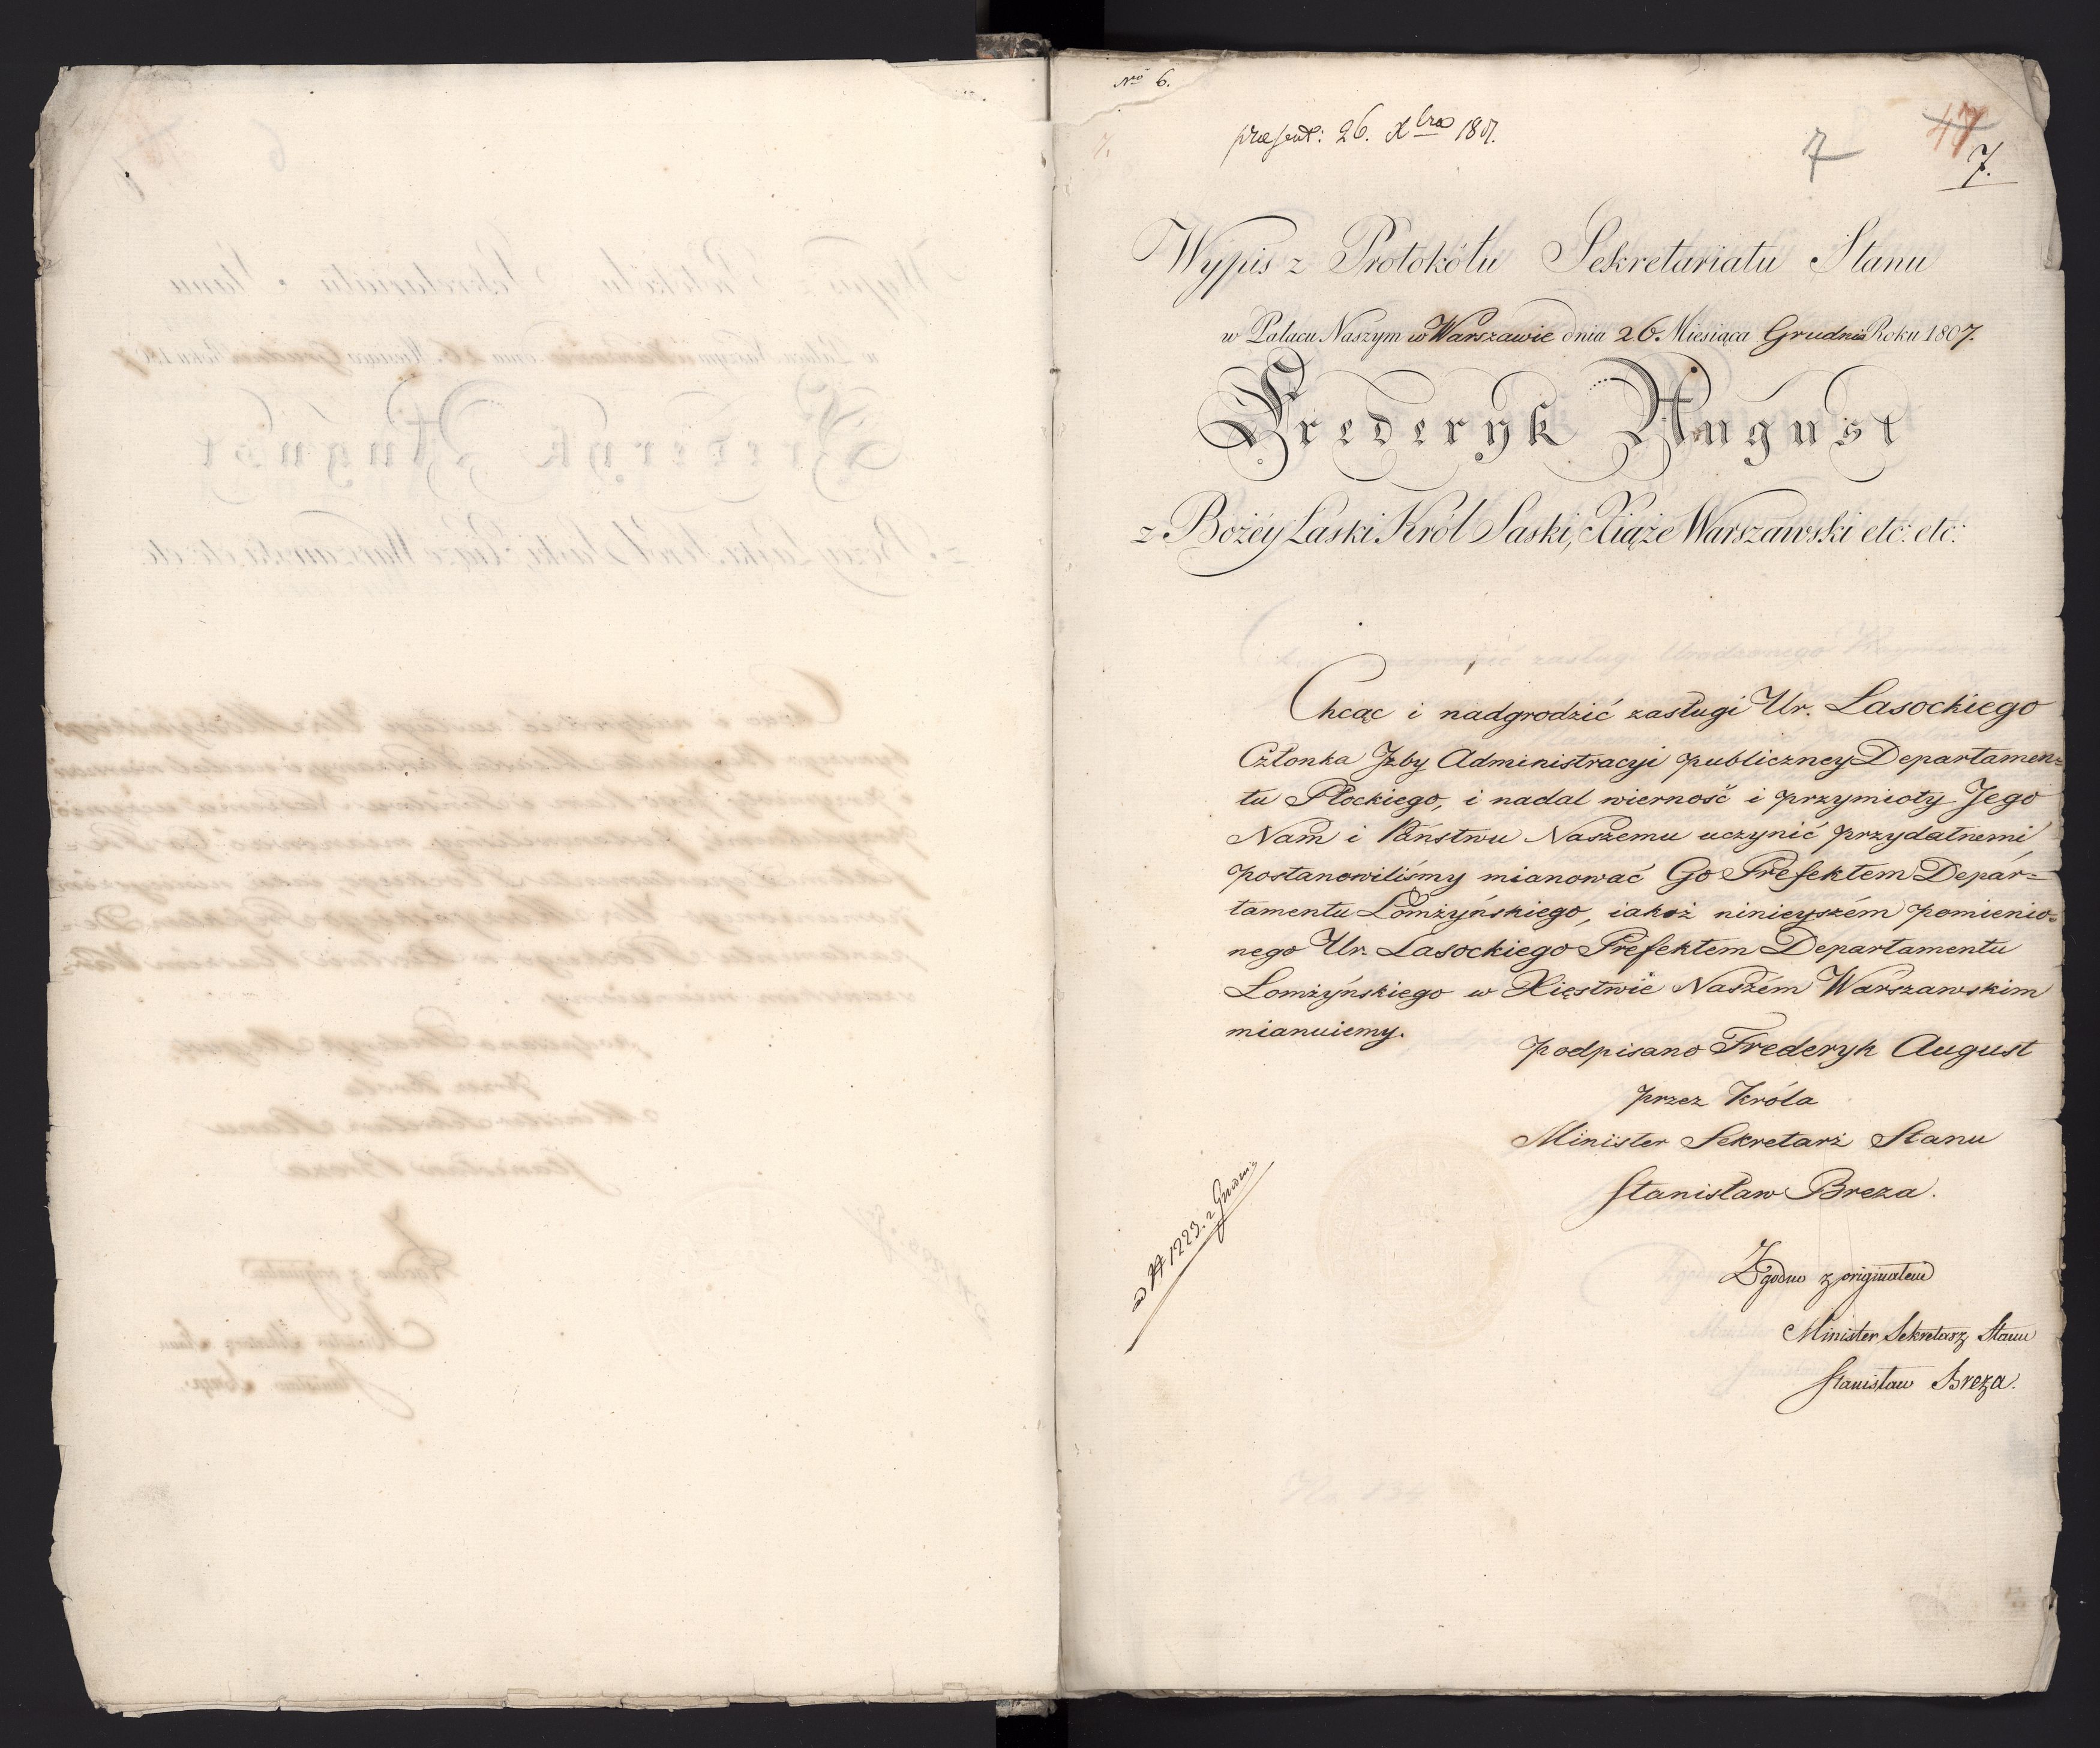 Nro 6.
præsent: 26. Xbra 1807.
7
47
7.
Wypis z Protokółu Sekretariatu Stanu
w Pałacu Naszym w Warszawie dnia 26 Miesiąca Grudnia Roku 1807.
Frederyk August
z Bożéy Łaski Król Saski, Xiąże Warszawski etc: etc:
Chcąc i nadgrodzić zasługi Ur. Lasockiego
Członka Jzby Administracyi publiczney Departamen=
tu Płockiego, i nadal wierność i przymioty Jego
Nam i Państwu Naszemu uczynić przydatnemi
postanowiliśmy mianować Go Prefektem Depar=
tamentu Łomżyńskiego, iakoż ninieyszém pomienio=
nego Ur. Lasockiego Prefektem Departamentu
Łomżyńskiego w Xięstwie Naszém Warszawskim
mianuiemy.
podpisano Frederyk August
przez Króla
Minister Sekretarz Stanu
Stanisław Breza.
ad N 1223. z Grudnia
Zgodno z originałem
Minister Sekretarz Stanu
Stanisław Breza.